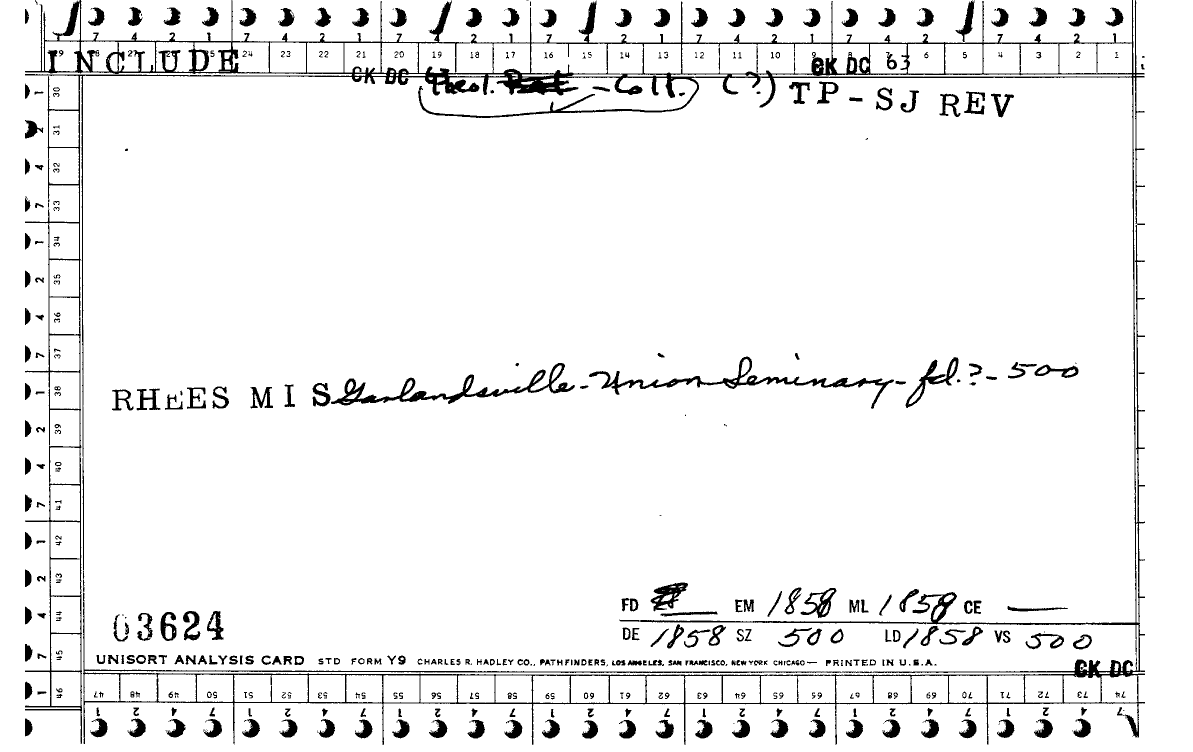 7 4 2 1 7 4 2 1 7 4 2 1 7 4 2 1 7 4 2 1 7 4 2 1 7 4 2 1
INCLUDE 24 23 22 21 20 19 18 17 16 15 14 13 12 11 10 9 8 7 6 5 4 3 2 1
CK DC Theol. - Coll. (?) TP-SJ REV CK DC 63
1 30
2 31
4 32
7 33
1 34
2 35
4 36
7 37
RHEES MIS Garlandsville - Union Seminary - fd.? - 500
1 38
2 39
4 40
7 41
1 42
2 43
4 44
7 45
1 46
03624
FD EM 1858 ML 1858 CE —
DE 1858 SZ 500 LD 1858 VS 500
UNISORT ANALYSIS CARD STD FORM Y9 CHARLES R. HADLEY CO., PATHFINDERS, LOS ANGELES, SAN FRANCISCO, NEW YORK CHICAGO — PRINTED IN U.S.A.
CK DC
47 48 49 50 51 52 53 54 55 56 57 58 59 60 61 62 63 64 65 66 67 68 69 70 71 72 73 74
1 2 4 7 1 2 4 7 1 2 4 7 1 2 4 7 1 2 4 7 1 2 4 7 1 2 4 7